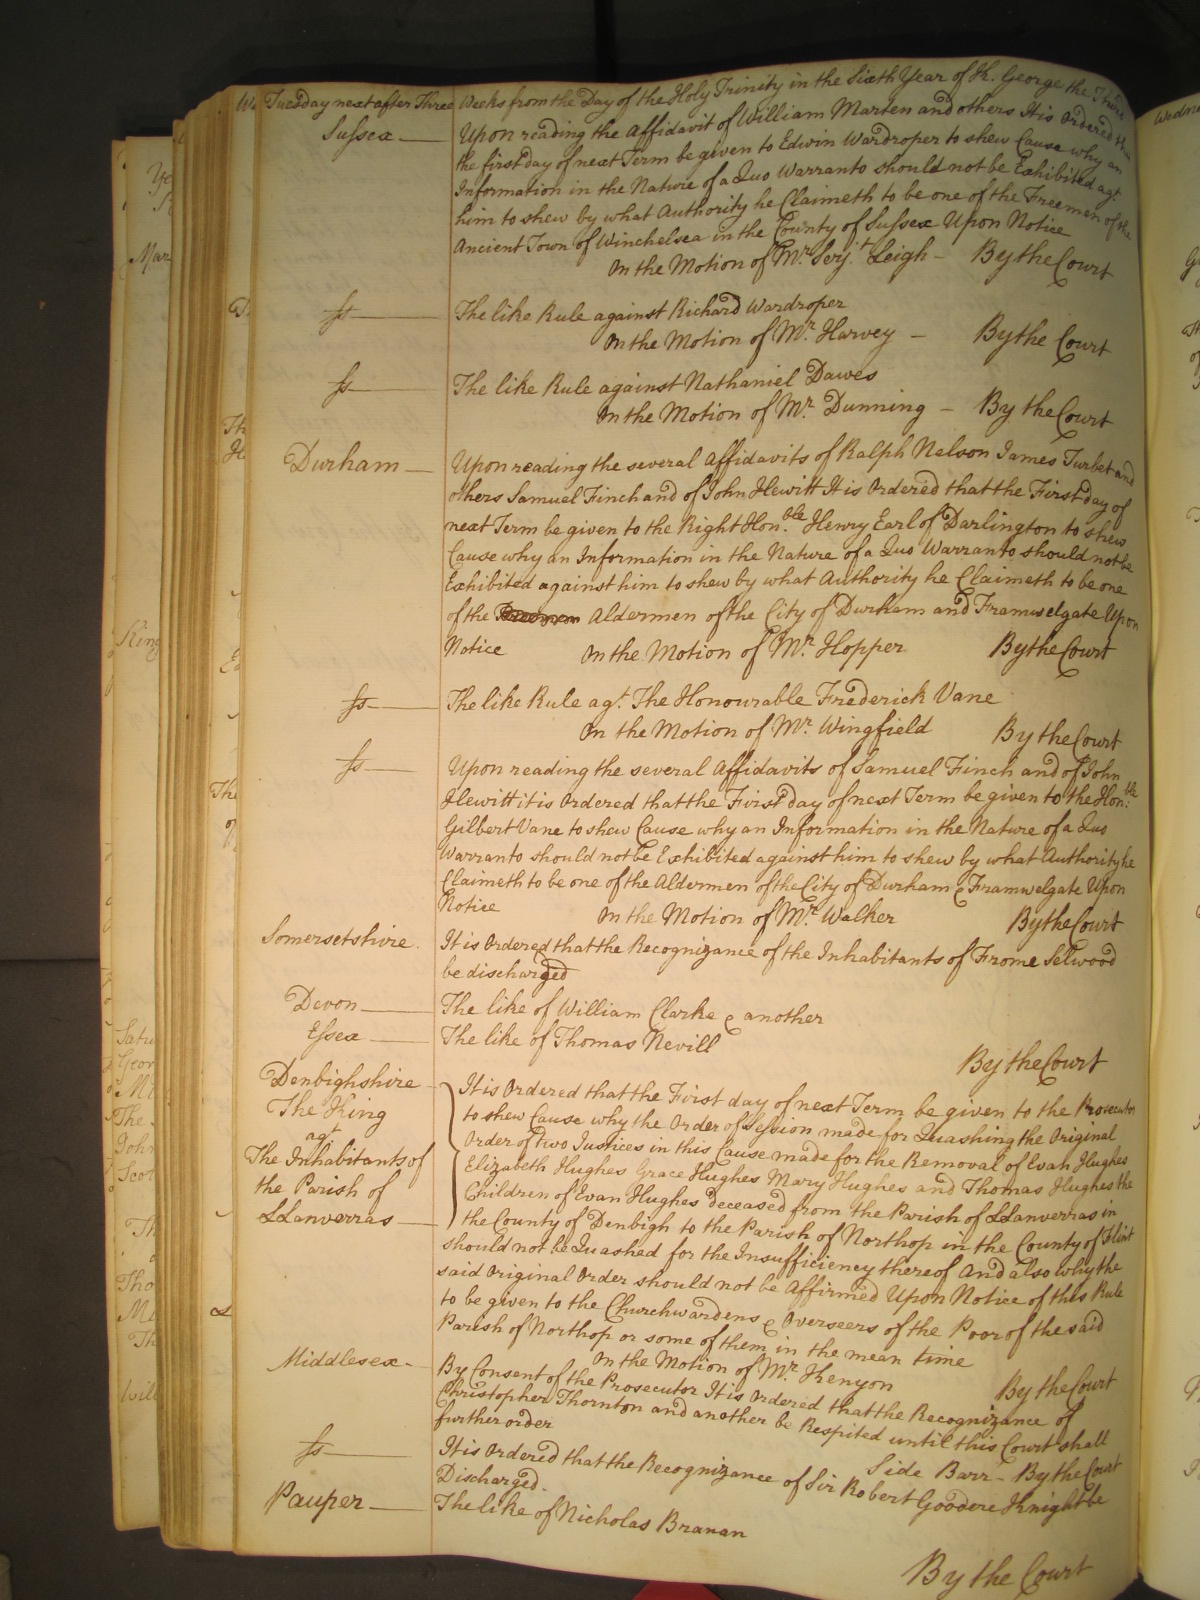 Tuesday next after Three Weeks from the Day of the Holy Trinity in the Sixth Year of K. George the Third
Sussex — Upon reading the Affidavit of William Marten and others It is Ordered that
the first day of next Term be given to Edwin Wardroper to shew Cause why an
Information in the Nature of a Quo Warranto should not be Exhibited agt.
him to shew by what Authority he Claimeth to be one of the Freemen of the
Ancient Town of Winchelsea in the County of Sussex Upon Notice
On the Motion of Mr. Serjt. Leigh — By the Court
ss — The like Rule against Richard Wardroper
On the Motion of Mr. Harvey — By the Court
ss — The like Rule against Nathaniel Dawes
On the Motion of Mr. Dunning — By the Court
Durham — Upon reading the several Affidavits of Ralph Nelson James Turbet and
others Samuel Finch and of John Hewitt It is Ordered that the First day of
next Term be given to the Right Hon.ble Henry Earl of Darlington to shew
Cause why an Information in the Nature of a Quo Warranto should not be
Exhibited against him to shew by what Authority he Claimeth to be one
of the Freemen Aldermen of the City of Durham and Framwelgate Upon
Notice On the Motion of Mr. Hopper By the Court
ss — The like Rule agt. The Honourable Frederick Vane
On the Motion of Mr. Wingfield By the Court
ss — Upon reading the several Affidavits of Samuel Finch and of John
Hewitt it is Ordered that the First day of next Term be given to the Hon:ble
Gilbert Vane to shew Cause why an Information in the Nature of a Quo
Warranto should not be Exhibited against him to shew by what Authority he
Claimeth to be one of the Aldermen of the City of Durham & Framwelgate Upon
Notice On the Motion of Mr. Walker By the Court
Somersetshire. It is Ordered that the Recognizance of the Inhabitants of Frome Selwood
be discharged
Devon — The like of William Clarke & another
Essex — The like of Thomas Nevill
By the Court
Denbighshire It is Ordered that the First day of next Term be given to the Prosecutor
The King to shew Cause why the Order of Session made for Quashing the Original
agt Order of two Justices in this Cause made for the Removal of Evah Hughes
The Inhabitants of Elizabeth Hughes Grace Hughes Mary Hughes and Thomas Hughes the
the Parish of Children of Evan Hughes deceased from the Parish of LLanverras in
LLanverras — the County of Denbigh to the Parish of Northop in the County of Flint
should not be Quashed for the Insufficiency thereof And also why the
said Original Order should not be Affirmed Upon Notice of this Rule
to be given to the Churchwardens & Overseers of the Poor of the said
Parish of Northop or some of them in the mean time
On the Motion of Mr. Kenyon By the Court
Middlesex — By Consent of the Prosecutor It is Ordered that the Recognizance of
Christopher Thornton and another be Respited until this Court shall
further order
Side Barr — By the Court
ss — It is Ordered that the Recognizance of Sir Robert Goodere Knight be
Discharged.
Pauper — The like of Nicholas Branan
By the Court